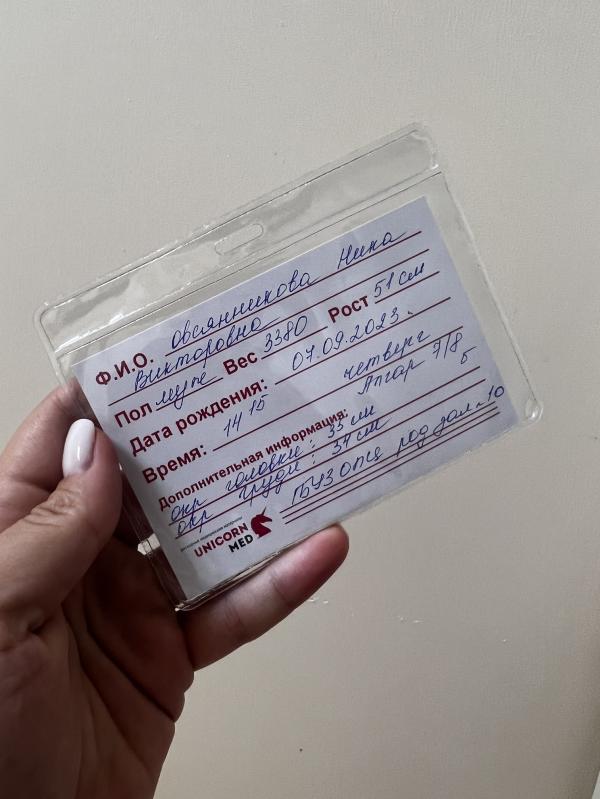 Ф.И.О. Овсянникова Нина
Викторовна
Пол муж Вес 3380 Рост 51 см
Дата рождения: 07.09.2023.
Время: 14 15 четверг
Апгар 7/8
Дополнительная информация: Б
окр головки: 35 см
окр груди: 34 см
ГБУЗ род дом 10
UNICORN
MED